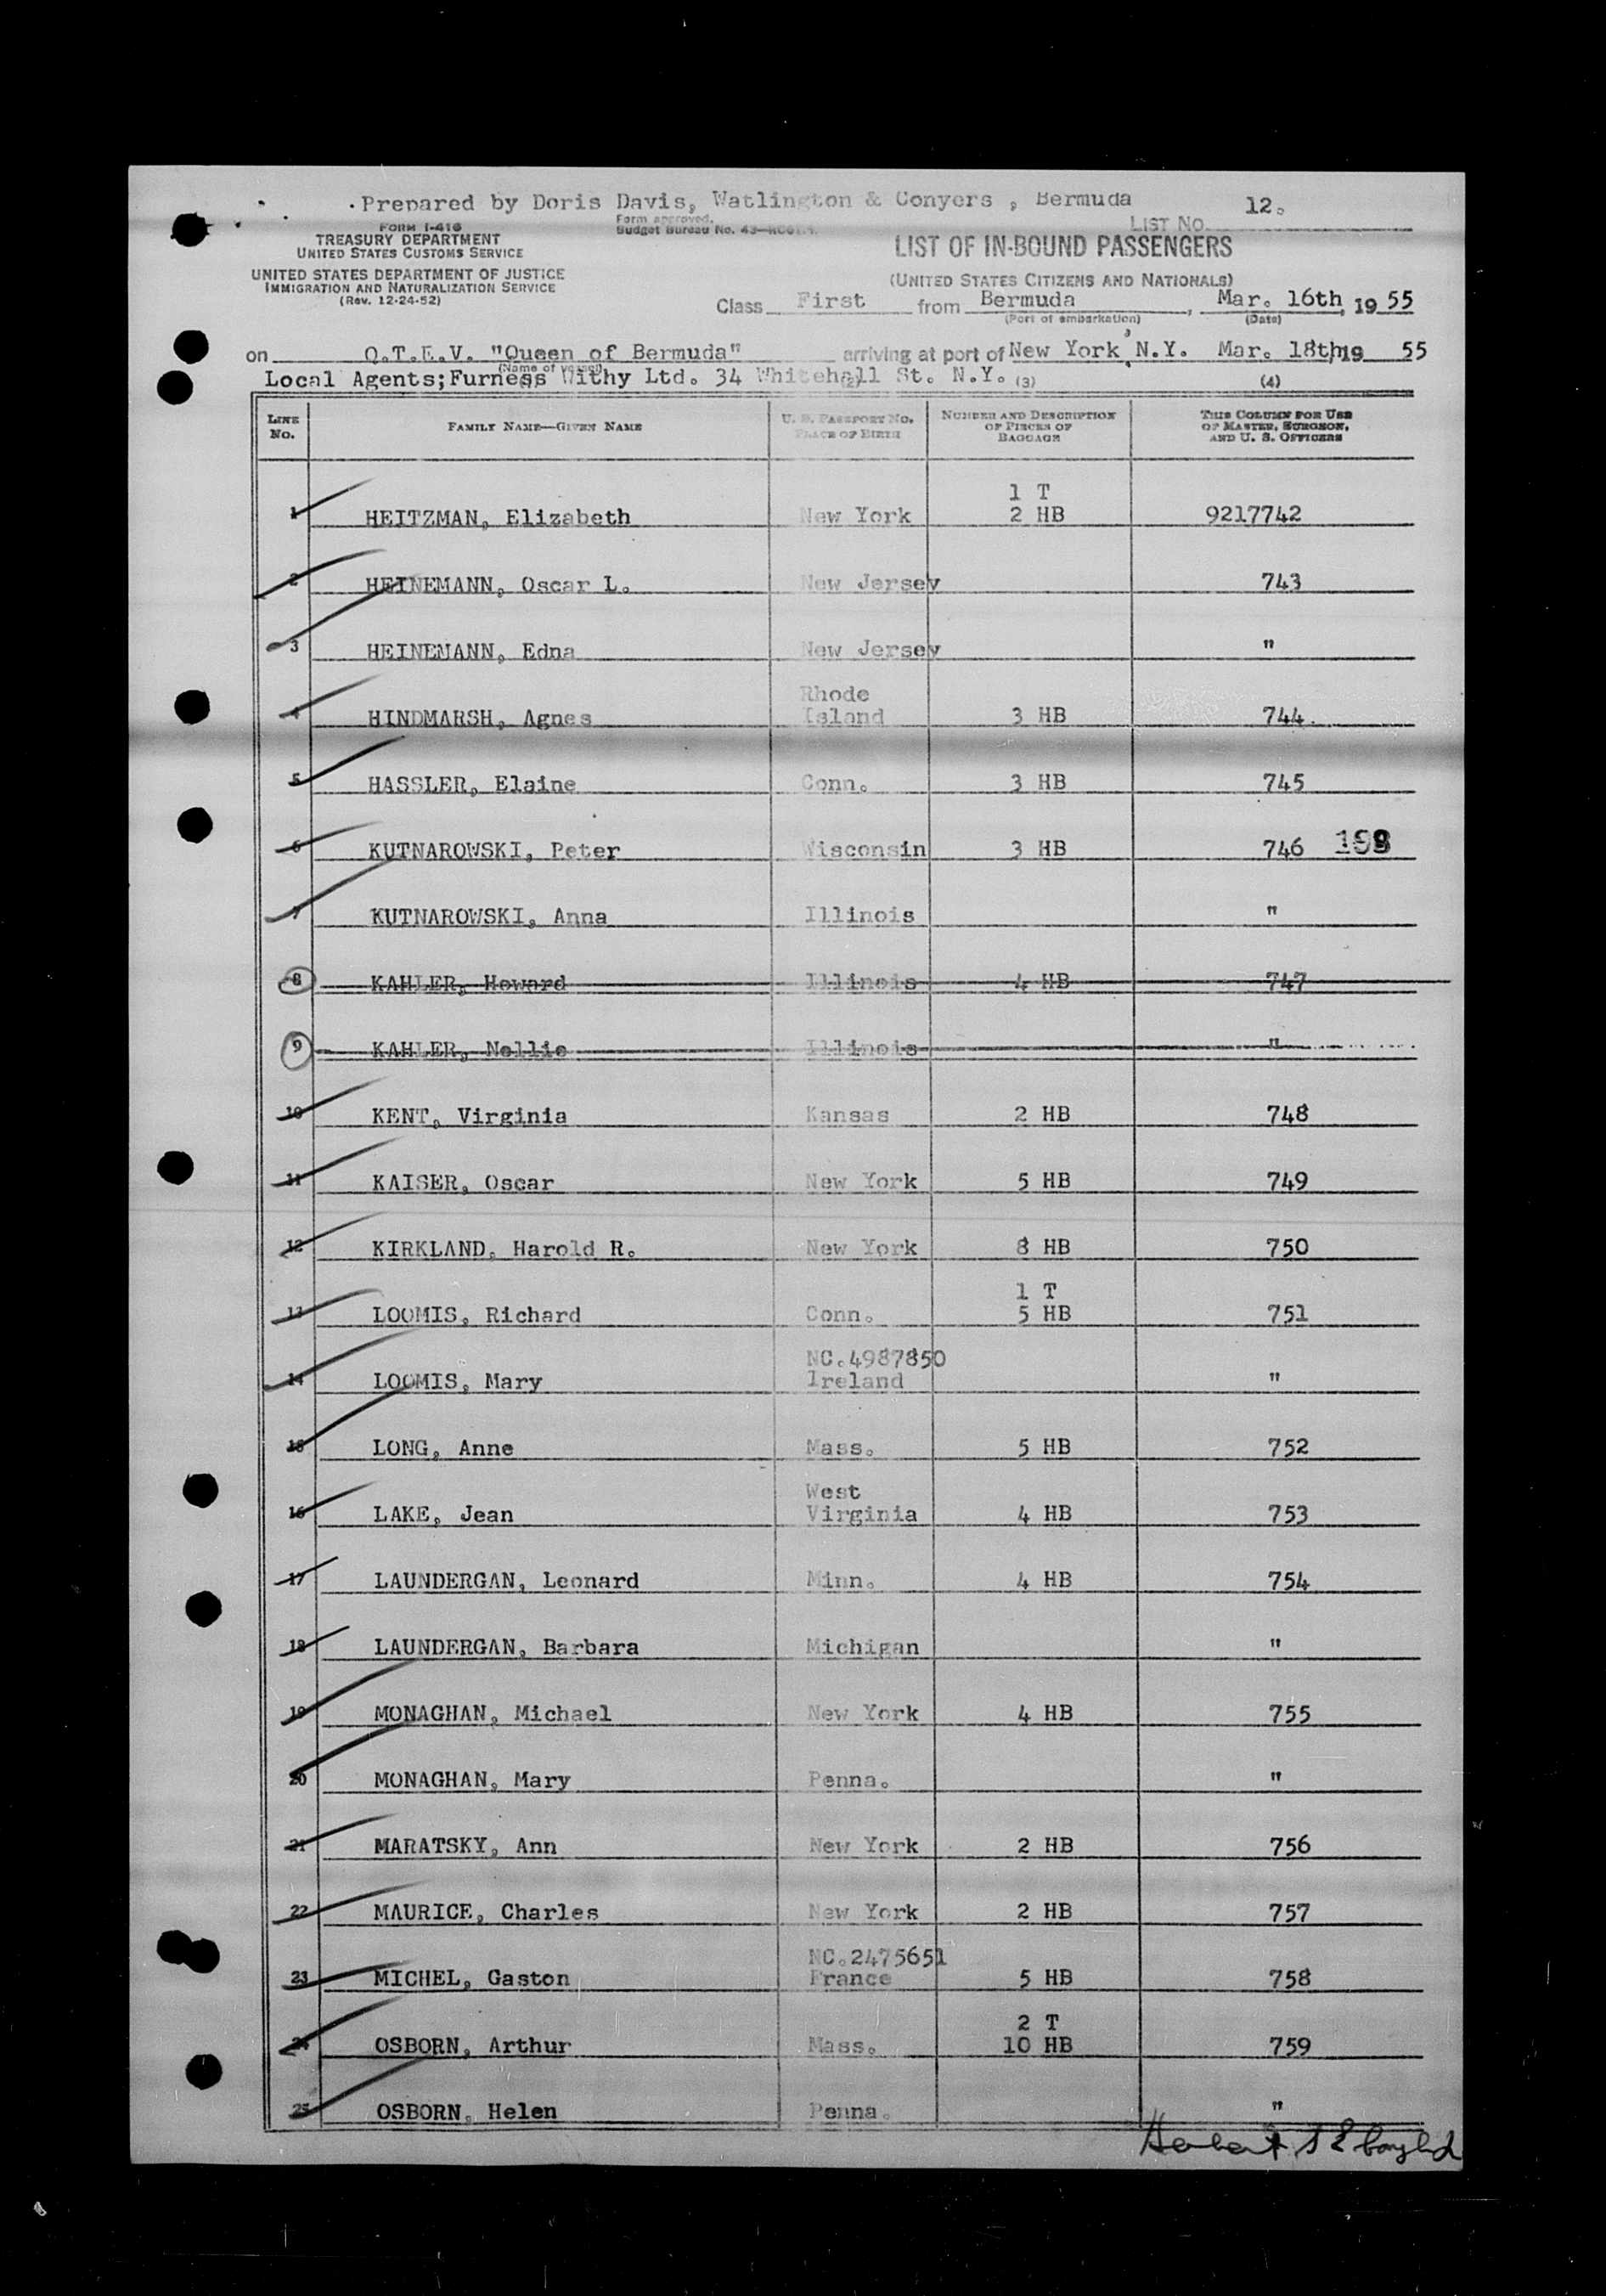 Prepared by Doris Davis, Watlington & Conyers , Bermuda 12.
Form approved.
Budget Bureau No.
LIST NO.
FORM I-416
TREASURY DEPARTMENT
UNITED STATES CUSTOMS SERVICE
UNITED STATES DEPARTMENT OF JUSTICE
IMMIGRATION AND NATURALIZATION SERVICE
(Rev. 12-24-52)
LIST OF IN-BOUND PASSENGERS
(UNITED STATES CITIZENS AND NATIONALS)
Class First from Bermuda, Mar. 16th, 19 55
(Port of embarkation) (Date)
on Q.T.E.V. "Queen of Bermuda" arriving at port of New York, N.Y. Mar. 18th, 19 55
(Name of vessel)
Local Agents;Furness Withy Ltd. 34 Whitehall St. N.Y. (3) (4)
LINE No. FAMILY NAME—GIVEN NAME U. S. PASSPORT NO. PLACE OF BIRTH NUMBER AND DESCRIPTION OF PIECES OF BAGGAGE THIS COLUMN FOR USE OF MASTER, SURGEON, AND U. S. OFFICERS
1 T
1 HEITZMAN, Elizabeth New York 2 HB 9217742
2 HEINEMANN, Oscar L. New Jersey 743
3 HEINEMANN, Edna New Jersey "
Rhode
4 HINDMARSH, Agnes Island 3 HB 744.
5 HASSLER, Elaine Conn. 3 HB 745
6 KUTNAROWSKI, Peter Wisconsin 3 HB 746
7 KUTNAROWSKI, Anna Illinois "
8 KAHLER, Howard Illinois 4 HB 747
9 KAHLER, Nellie Illinois "
10 KENT, Virginia Kansas 2 HB 748
11 KAISER, Oscar New York 5 HB 749
12 KIRKLAND, Harold R. New York 8 HB 750
1 T
13 LOOMIS, Richard Conn. 5 HB 751
NC.4987850
14 LOOMIS, Mary Ireland "
15 LONG, Anne Mass. 5 HB 752
West
16 LAKE, Jean Virginia 4 HB 753
17 LAUNDERGAN, Leonard Minn. 4 HB 754
18 LAUNDERGAN, Barbara Michigan "
19 MONAGHAN, Michael New York 4 HB 755
20 MONAGHAN, Mary Penna. "
21 MARATSKY, Ann New York 2 HB 756
22 MAURICE, Charles New York 2 HB 757
NC.2475651
23 MICHEL, Gaston France 5 HB 758
2 T
24 OSBORN, Arthur Mass. 10 HB 759
25 OSBORN, Helen Penna. "